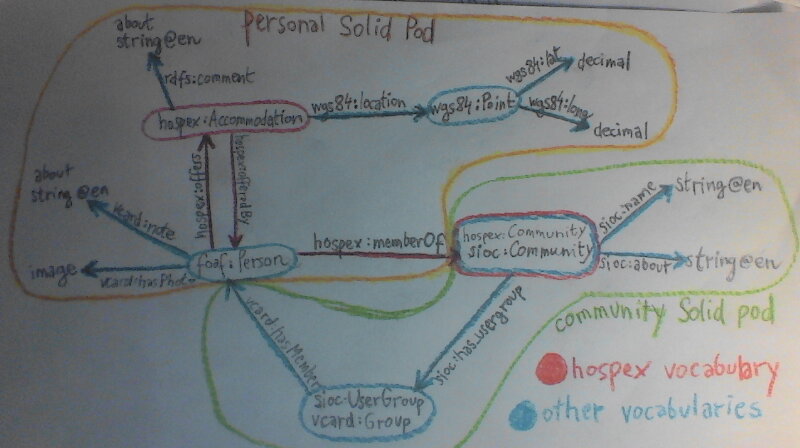 personal Solid Pod
about
string@en
rdfs:comment
wgs84:lat
decimal
wgs84:location
wgs84:Point
wgs84:long
decimal
hospex:Accommodation
hospex:offers
hospex:offeredBy
about
string@en
vcard:note
image
vcard:hasPhoto
foaf:Person
hospex:memberOf
hospex:Community
sioc:Community
sioc:name
string@en
sioc:about
string@en
community Solid pod
vcard:hasMember
sioc:has_usergroup
sioc:UserGroup
vcard:Group
hospex vocabulary
other vocabularies